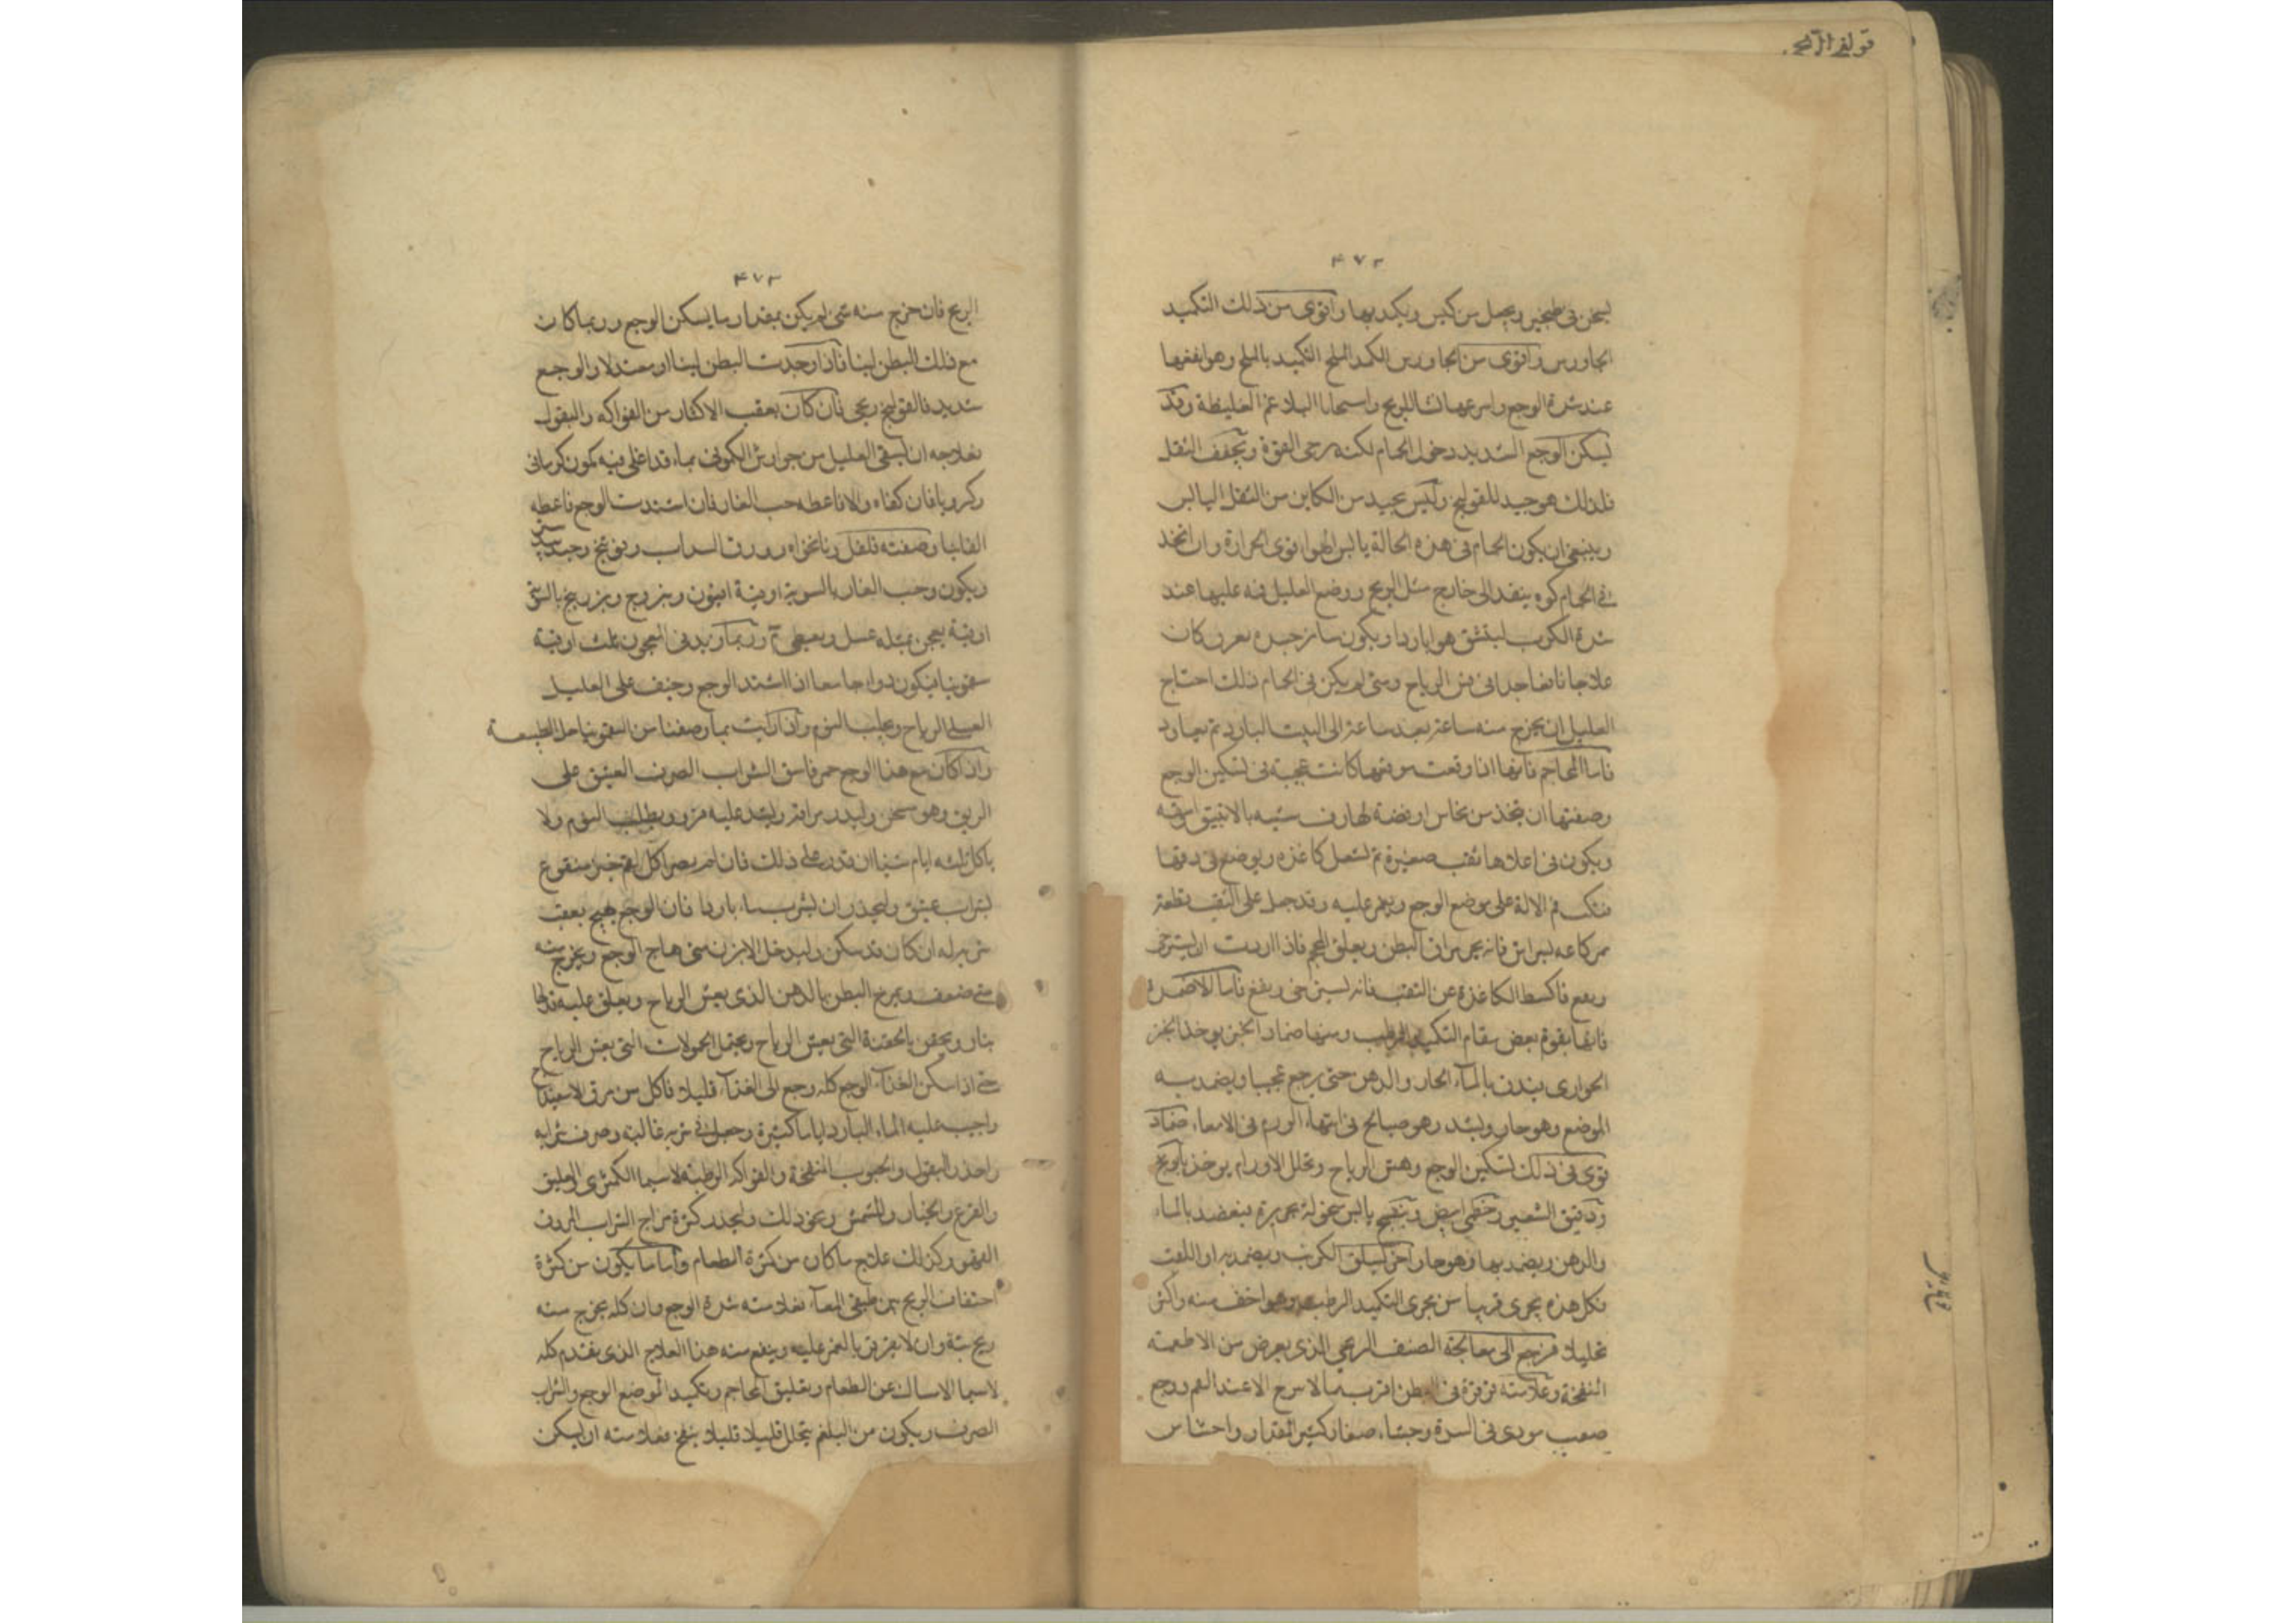 قولنج الريح
٤٧٢
يسخن في طنجير ويجعل من كيس ويكمد بها واقوى من ذلك التكميد
الجاورس واقوى من الجاورس الكمد الملح التكميد بالملح وهو انفعها
عند شدة الوجع واسرعها للريح البلاغم الغليظة وقد
يسكن الوجع الشديد دخول الحمام لكنه يرخى القوة ويجفف الثفل
فلذلك هو جيد للقولنج وليس بجيد من الكاين من الثفل اليابس
وينبغي ان يكون الحمام في هذه الحالة يابس الهوا قوى الحرارة وان اتخذ
في الحمام كوه ينفذ الى خارج مثل ووضع العليل فمه عليها عند
شدة الكرب ليتنشق هوا باردا ويكون ساير جسده يعرق كان
علاجا نافعا جدا في فش الرياح ومتى لم يكن في الحمام ذلك احتاج
العليل ان يخرج منه ساعة بعد ساعة الى البيت البارد ثم يعاود
فاما المحاجم فانها اذا وقعت موقعها كانت عجيبة في تسكين الوجع
وصفتها ان يتخذ من نحاس او فضة لها شبيه بالانبيق
ويكون في اعلاها ثقب صغيرة ثم تشعل كاغذه ويوضع في
فم الالة على موضع الوجع ويغمز عليه وقد جعل على الثقب قطعة
فانه يجر مراق البطن ويعلق فاذا اردت ان يسترخى
ويقع فاكشط الكاغذة عن الثقب فانه يسترخى ويقع فاما الاضمدة
فانها بقوة بعض مقام التكميد ومنها ضماد الخبز يوخذ الخبز
الحوارى يندف بالماء الحار والدهن حتى يرجع عجينا ويضمد به
الموضع وهو حار ويشد وهو صالح في انتهاء الورم في الامعاء ضماد
قوى في ذلك لتسكين الوجع وفش الرياح وتحلل الاورام يوخذ بابونج
ودقيق الشعير وخطمى ابيض وبنفسج يابس بحريرة بالماء
والدهن ويضمد بها وهو حار اخر يسلق الكرنب ويضمد به او اللفت
فكل هذه يجرى قريبا من مجرى التكميد الرطب وهو اخف منه واكثر
تحليلا فنرجع الى معالجة الصنف الريحي الذى يعرض من الاطعمة
النفخة وعلامته قرقرة في البطن ووجع
صعب موذى في السرة وجشاء صغار كثير المقدار واحتباس
٤٧٣
الريح فان خرج منه شي لم يكن بمقدار ما يسكن الوجع وربما كان
مع ذلك البطن لينا فاذا وجدت البطن لينا او معتدلا والوجع
شديد فالقولنج ريحي فان كان بعقب الاكثار من الفواكه والبقول
فعلاجه ان يسقى العليل من جوارش الكمونى بماء قد اغلى فيه كمون كرمانى
وكرويا فان كفاه والا فاعطه حب الغار فان اشتدت الوجع فاعطه
وصفته فلفل ونانخواه وورق السداب وفوتنج
وكمون وحب الغار بالسوية اوقية افيون وبزر بنج
اوقية يعجن بمثله عسل ويعطى وربما زيد في المعجون ثلث اوقية
سقمونيا فيكون دواء جامعا اذا اشتد الوجع وخيف على العليل
الرياح ويجلب النوم واذا ركبت بما وصفنا من السقمونيا حل الطبيعة
وان كان مع هذا الوجع حمى فاسق الشراب الصرف العتيق على
الريق وهو سخن وليدثر مراقه ويشد عليه فرو ويطلب النوم ولا
ياكل ثلثه ايام شيا ان قدر على ذلك فان لم يصبر اكل لقم خبز منقوع
بشراب عتيق وليحذر ان يشرب ماء باردا فان الوجع يهيج بعقب
شربه له ان كان قد سكن وليدخل الابزن متى هاج الوجع ويخرج منه
متى ضعف ويمرخ البطن بالدهن الذى يفش الرياح ويعلق عليه
بنار ويحقن بالحقنة التي يفش الرياح ويحتمل الحمولات التي يفش الرياح
حتى اذا سكن الوجع كله رجع الى الغذاء قليلا فاكل من مرق
واجتنب عليه الماء البارد اياما كثيرة وجعل في شربه وصرف شرابه
واحذر البقول والحبوب المنفخة والفواكه الرطبة لاسيما الكمثرى والعليق
والقرع والخيار والمشمش ونحو ذلك وليحذر كثرة مزاج الشراب
وكذلك علاج ما كان من كثرة الطعام واما ما يكون من كثرة
احتقان الريح بين طبقى المعاء فعلامته شدة الوجع وان كله يخرج منه
ريح بتة وان لا يقرقر بالغمز عليه وينفع منه هذا العلاج الذى يقدم كله
لاسيما الامساك عن الطعام وتعليق المحاجم وتكميد الموضع الوجع والشراب
الصرف ويكون من البلغم يتحلل قليلا قليلا ينفخ فعلامته ان يسكن